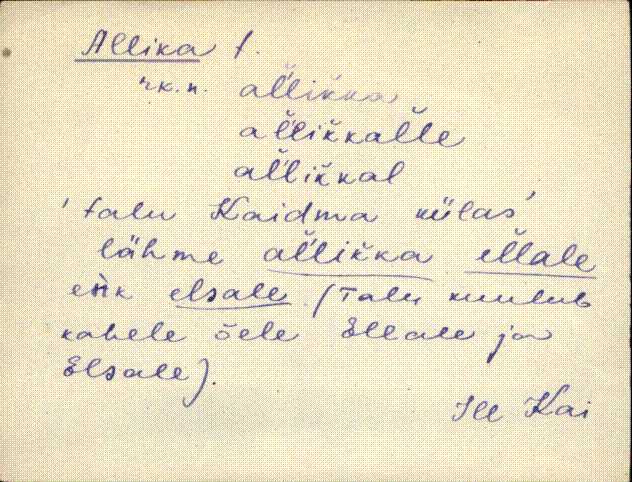 Allika t.
rk.n. al̆likka
al̆likkal̆le
al̆likkal
'talu Kaidma külas'
lähme al̆likka el̆lale
eǹk elsale (Talu kuulub
kahele õele Ellale ja
Elsale).
Ill Kai